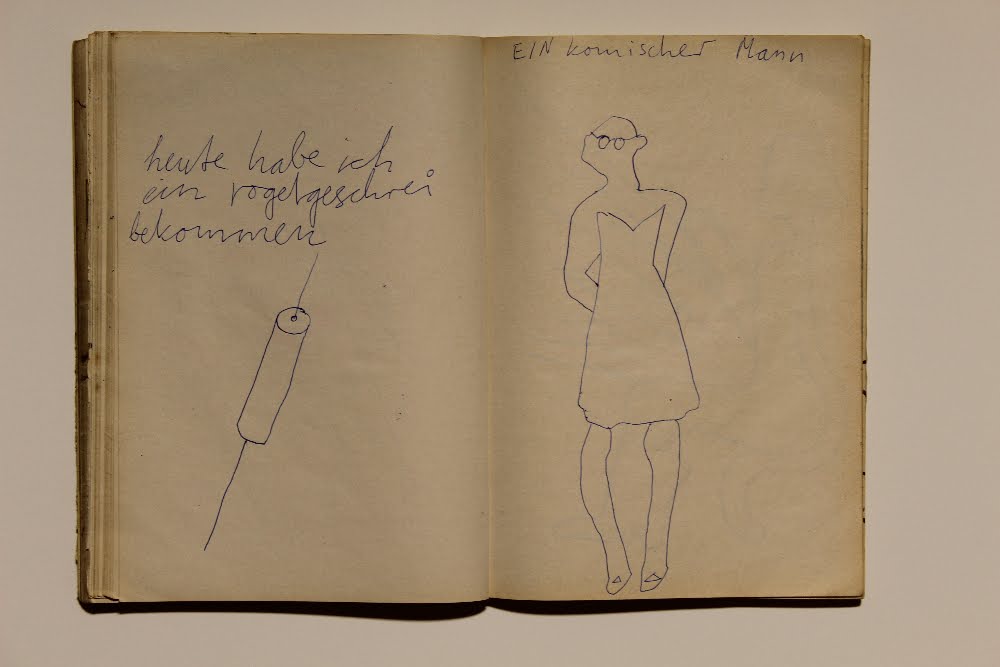 heute habe ich
ein vogelgeschrei
bekommen
EIN komischer Mann